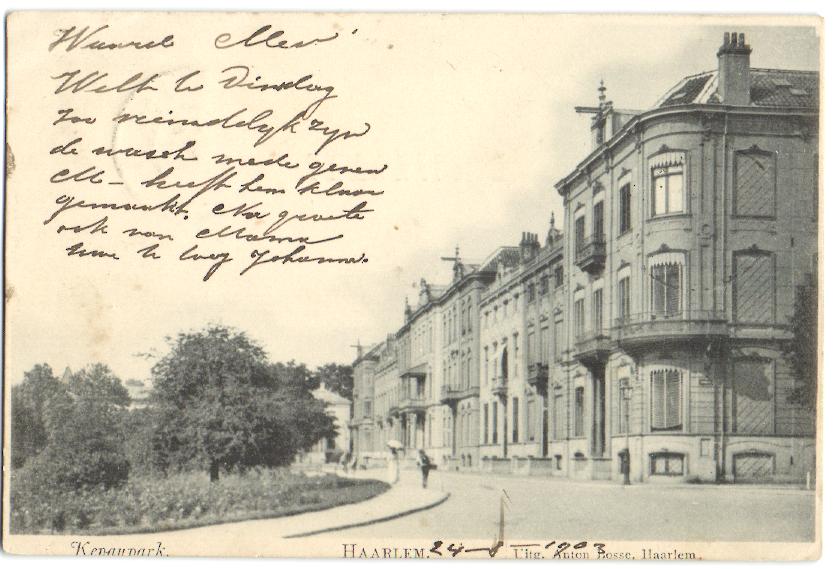 Waarde Mev'
Welt U Dinsdag
zoo vriendelyk zyn
de wasch mede geven
M– heeft hem klaar
gemaakt. Na groete
ook van Mama
uwe Johanna.
Kenaupark.
HAARLEM. 24- -1903 Uitg. Anton Bosse, Haarlem.